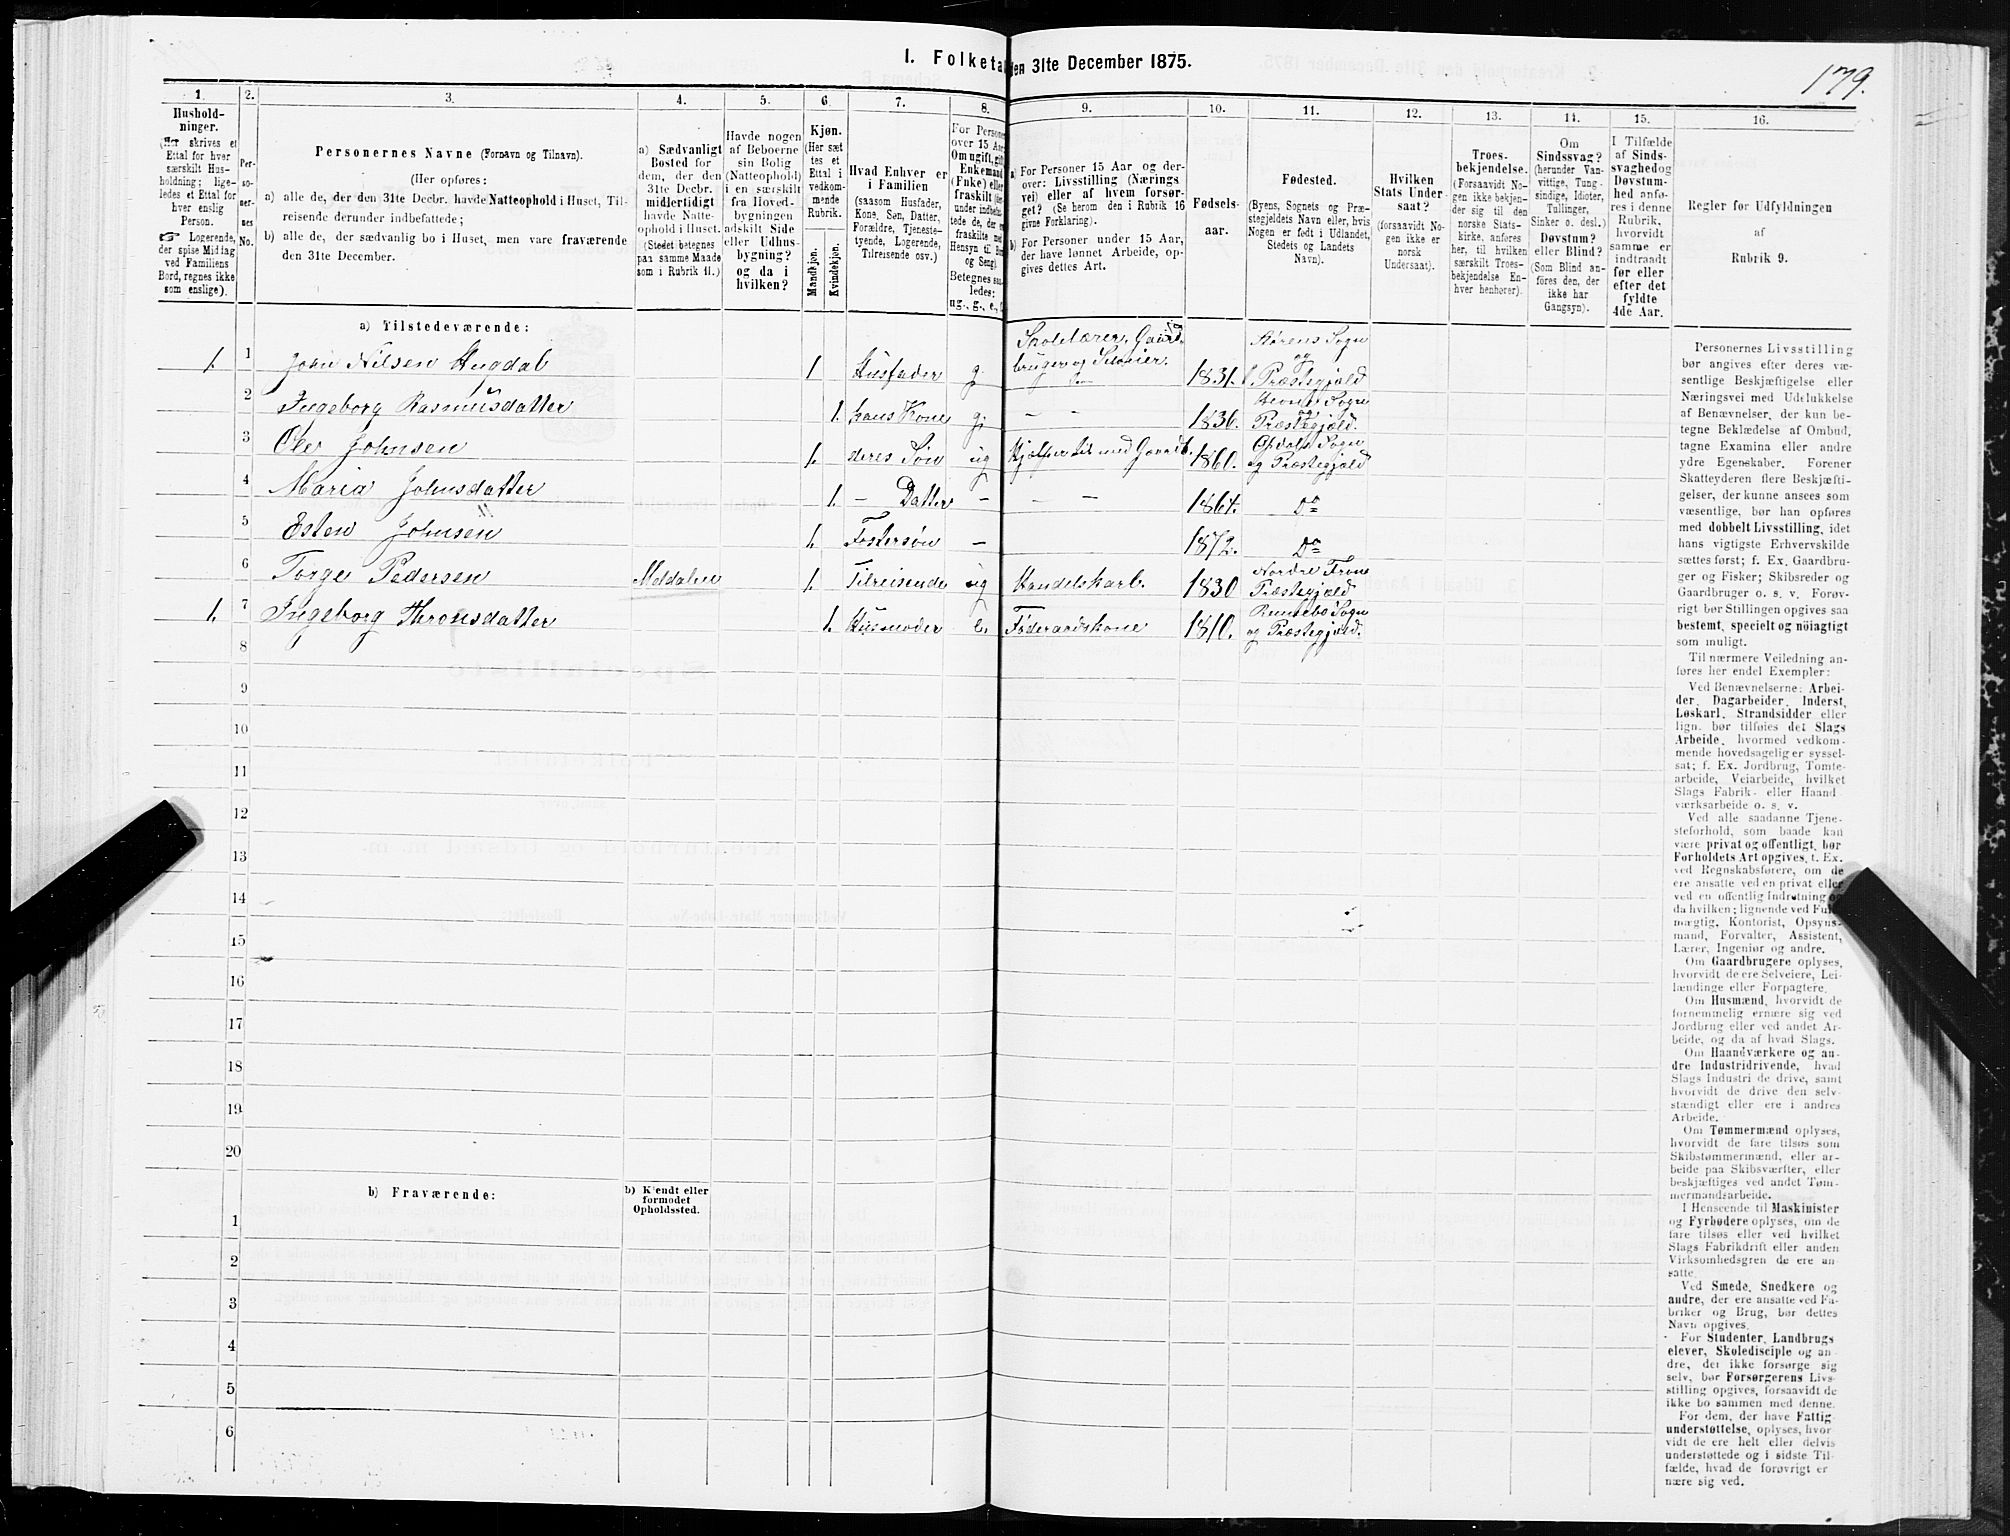 179.
I. Folketa den 31te December 1875.
1.
Hushold-
ninger.
(Her skrives et
Ettal for hver
særskilt Hus-
holdning; lige-
ledes et Ettal for
hver enslig
Person.
☞ Logerende,
der spise Middag
ved Familiens
Bord, regnes ikke
som enslige).
2.
Per-
so-
ner-
nes
No.
3.
Personernes Navne (Fornavn og Tilnavn).
(Her opføres:
a) alle de, der den 31te Decbr. havde Natteophold i Huset, Til-
reisende derunder indbefattede;
b) alle de, der sædvanlig bo i Huset, men vare fraværende
den 31te December.
4.
a) Sædvanligt
Bosted for
dem, der den
31te Decbr.
midlertidigt
havde Natte-
ophold i Huset.
(Stedet betegnes
paa samme Maade
som i Rubrik 11.)
5.
Havde nogen
af Beboerne
sin Bolig
(Natteophold)
i en særskilt
fra Hoved-
bygningen
adskilt Side
eller Udhus-
bygning?
og da i
hvilken?
6.
Kjøn.
(Her sæt
tes et
Ettal i
vedkom-
mende
Rubrik.
Mandkjøn.
Kvindekjøn.
7.
Hvad Enhver er
i Familien
(saasom Husfader,
Kone, Søn, Datter,
Forældre, Tjeneste-
tyende, Logerende,
Tilreisende osv.)
8.
For Persone
over 15 Aar
Om ugift, gift
Enkemand
(Enke) eller
fraskilt
Betegnes saa-
ledes:
ug., g., e.,
9.
a) For Personer 15 Aar og der-
over: Livsstilling (Nærings
vei) eller af hvem forsør-
get? (Se herom den i Rubrik 16
givne Forklaring).
b) For Personer under 15 Aar,
der have lønnet Arbeide, op-
gives dettes Art.
10.
Fødsels-
aar.
11.
Fødested.
(Byens, Sognets og Præ-
stegjeldets Navn eller, hvis
Nogen er født i Udlandet,
Stedets og Landets
Navn).
12.
Hvilken
Stats Under-
saat?
(forsaavidt No-
gen ikke er
norsk
Undersaat).
13.
Troes-
bekjendelse.
(Forsaavidt No-
gen ikke bekjen-
der sig til den
norske Stats-
kirke, anføres
her, til hvilken
særskilt Troes-
bekjendelse En-
hver henhører).
14.
Om
Sindssvag?
(herunder Van-
vittige, Tung-
sindige, Idioter,
Tullinger,
Sinker o. desl.)
Døvstum?
eller Blind?
(Som Blind an-
føres den, der
ikke har
Gangsyn).
15.
I Tilfælde
af Sinds-
svaghed og
Døvstum-
hed anfø-
res i denne
Rubrik,
hvorvidt
samme er
indtraadt
før eller
efter det
fyldte
4de Aar.
16.
Regler for Udfyldningen
af
Rubrik 9.
a) Tilstedeværende:
1. 1 John Nilsen Hugdal 1. Husfader g. Skolelærer, Gaard-
bruger og Selveier. 1831. Størens Sogn
og
Præstegjæld
2 Ingeborg Rasmusdatter 1. hans Kone g. — — 1836. Sogn
og
Præstegjæld.
3 Ole Johnsen 1. deres Søn ug Hjælper til med Gaardb. 1860. Opdals Sogn
og Præstegjæld
4 Maria Johnsdatter 1. — Datter — — — 1864. Do
5 Esten Johnsen 1. Fostersøn — 1872. Do
6 Torge Pedersen Meldalen 1. Tilreisende ug Handelskarl. 1830 Nordre Fron
Præstegjæld
1. 7 Ingeborg Thronsdatter 1. Husmoder e. Føderaadskone 1810. Rennebo Sogn
og Præstegjæld.
8
9
10
11
12
13
14
15
16
17
18
19
20
b) Fraværende:
b) Kjendt eller
formodet
Opholdssted.
1
2
3
4
5
6
Personernes Livsstilling
bør angives efter deres væ-
sentlige Beskjæftigelse eller
Næringsvei med Udelukkelse
af Benævnelser, der kun be-
tegne Beklædelse af Ombud,
tagne Examina eller andre
ydre Egenskaber. Forener
Skatteyderen flere Beskjæfti-
gelser, der kunne ansees som
væsentlige, bør han opføres
med dobbelt Livsstilling, idet
hans vigtigste Erhvervskilde
sættes først; f. Ex. Gaardbru-
ger og Fisker; Skibsreder og
Gaardbruger o. s. v. Forøv-
rigt bør Stillingen opgives saa
bestemt, specielt og nöiagtigt
som muligt.
Til nærmere Veiledning an-
føres her endel Exempler:
Ved Benævnelserne: Arbei-
der, Dagarbeider, Inderst,
Løskarl, Strandsidder eller
lign. bør tilføies det Slags
Arbeide, hvormed vedkom-
mende hovedsagelig er syssel-
sat; f. Ex. Jordbrug, Tomte-
arbeide, Veiarbeide, hvilket
Slags Fabrik- eller Haand
værksarbeide o. s. v.
Ved alle saadanne Tjene-
steforhold, som baade kan
være privat og offentligt, bør
Forholdets Art opgives, t. Ex.
ved Regnskabsførere, om de
ere ansatte ved en privat eller
ved en offentlig Indretning og
da hvilken; lignende ved Ful-
mægtig, Kontorist, Opsyns-
mand, Forvalter, Assistent,
Lærer, Ingeniør og andre.
Om Gaardbrugere oplyses,
hvorvidt de ere Selveiere, Lei-
lændinge eller Forpagtere.
Om Husmænd, hvorvidt de
fornemmelig ernære sig ved
Jordbrug eller ved andet Ar-
beide, og da af hvad Slags.
Om Haandværkere og an-
dre Industridrivende, hvad
Slags Industri de drive, samt
hvorvidt de drive den selv-
stændigt eller ere i andres
Arbeide.
Om Tømmermænd oplyses,
hvorvidt de fare tilsøs som
Skibstømmermænd, eller ar-
beide paa Skibsværfter, eller
beskjæftiges ved andet Tøm-
mermandsarbeide.
I Henseende til Maskinister
og Fyrbødere oplyses, om de
fare tilsøs eller ved hvilket
Slags Fabrikdrift eller anden
Virksomhedsgren de ere an-
satte.
Ved Smede, Snedkere og
andre, der ere ansatte ved Fa-
briker og Brug, bør dettes
Navn opgives.
For Studenter, Landbrugs
elever, Skoledisciple og an-
dre, der ikke forsørge sig
selv, bør Forsørgerens Livs-
stilling opgives, forsaavidt de
ikke bo sammen med denne.
For dem, der have Fattig-
understøttelse, oplyses, hvor-
vidt de ere helt eller delvis
understøttede og i sidste Til-
fælde, hvad de forøvrigt er
nære sig ved.